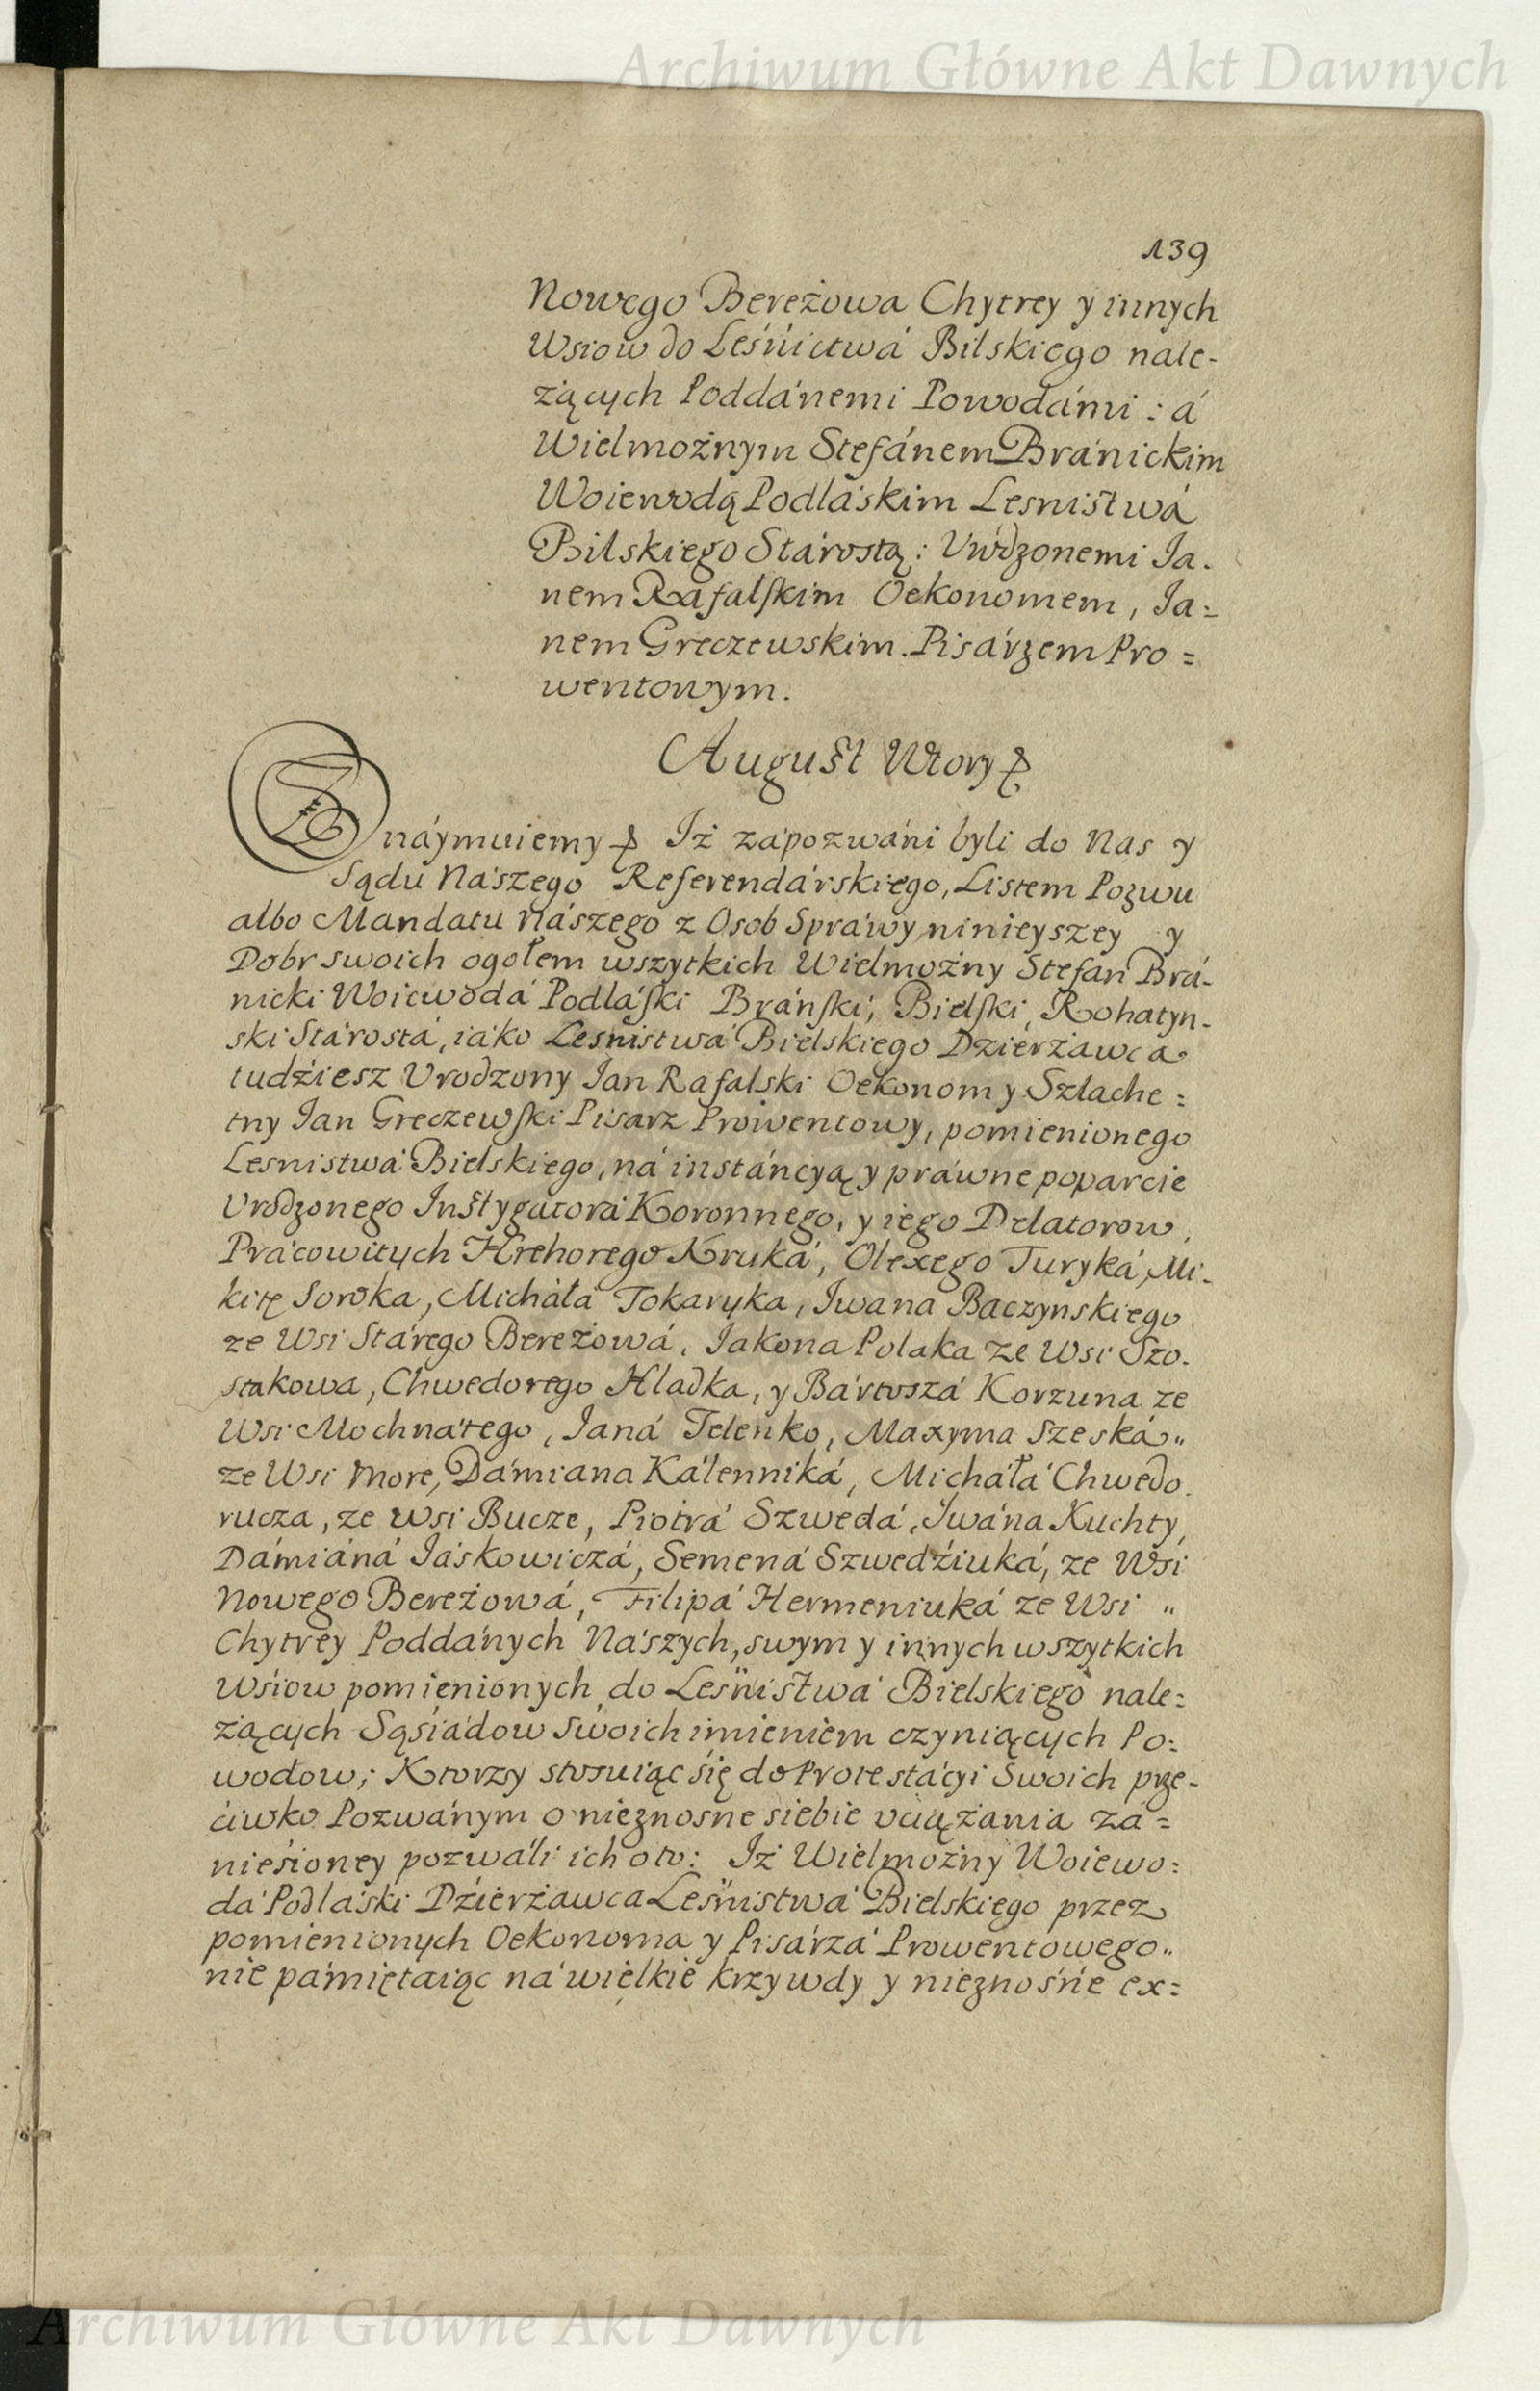 Archiwum Główne Akt Dawnych
139
Nowego Bereżowa Chytrey y innych
Wsiow do Leśńictwá Bilskiego nale-
żących Poddánemi Powodámi : á
Wielmożnym Stefánem Bránickim
Woiewodą Podláskim Lesnistwá
Bilskiego Stárostą : Urodzonemi Ja-
nem Rafalskim Oekonomem, Ja=
nem Greczewskim Pisárzem Pro=
wentowym.
August Wtory
Znáymuiemy Iż zápozwáni byli do Nas y
Sądu Nászego Referendárskiego, Listem Pozwu
albo Mandatu nászego z Osob Spráwy ninieyszey y
Dobr swoich ogołem wszytkich Wielmożny Stefan Brá-
nicki Woiewodá Podláski Bránski, Bielski, Rohatyn-
ski Stárostá, iáko Lesnistwá Bielskiego Dzierżawca
tudźiesz Urodzony Ian Rafalski Oekonom y Szlache=
tny Ian Greczewski Pisarz Prowentowy, pomienionego
Lesnistwá Bielskiego, ná instáncyą y práwne poparcie
Urodzonego Instygatorá Koronnego, y iego Delatorow,
Prácowitych Hrehorego Kruká, Olexego Turyká, Mi-
kitę Soroka, Michałá Tokaryka, Iwana Baczynskiego
ze Wsi Stárego Bereżowá, Jakona Polaka ze Wsi Szo-
stakowa, Chwedorego Hladka, y Bártoszá Korzuna ze
Wsi Mochnátego, Janá Telenko, Maxyma Szeská"
ze Wsi More, Dámiana Kálenniká, Michałá Chwedo-
rucza, ze wsi Bucze, Piotrá Szwedá, Iwána Kuchty,
Dámiáná Iáskowiczá, Semená Szwedźiuká, ze Wsi
Nowego Bereżowá, Filipá Hermeniuká ze Wsi "
Chytrey Poddánych Nászych, swym y innych wszytkich
Wsiow pomienionych do Leśnistwá Bielskiego nale=
żących Sąsiádow swoich imieniem czyniących Po=
wodow; Ktorzy stosuiąc się do Protestácyi Swoich prze-
ciwko Pozwánym o nieznosne siebie uciążania zá=
niesioney pozwáli ich oto: Iż Wielmożny Woiewo=
dá Podláski Dźierżawca Leśnistwá Bielskiego przez
pomienionych Oekonoma y Pisárzá Prowentowego"
nie pámiętaiąc ná wielkie krzywdy y nieznośne ex=
Archiwum Główne Akt Dawnych